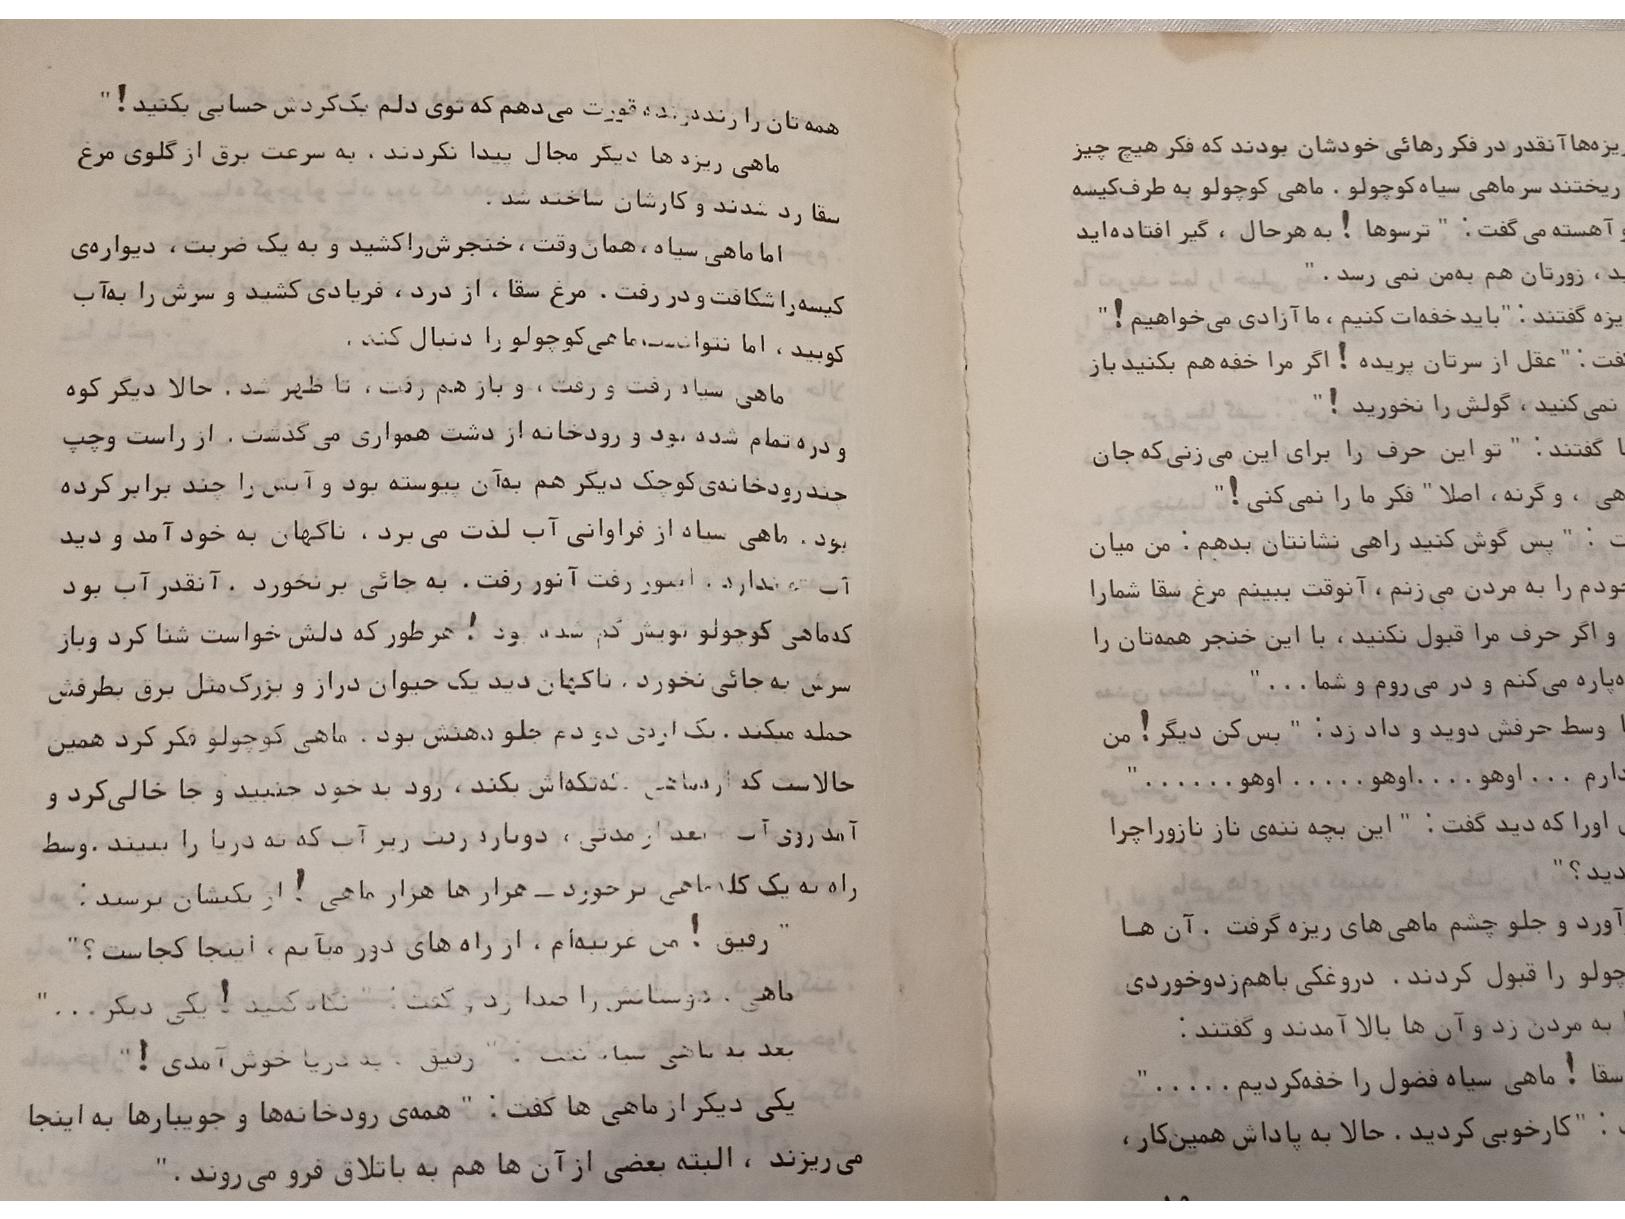 ریزه‌ها آنقدر در فکر رهائی خودشان بودند که فکر هیچ چیز
ریختند سر ماهی سیاه کوچولو . ماهی کوچولو به طرف‌کیسه
و آهسته می گفت : " ترسوها ! به هرحال ، گیر افتاده‌اید
ید ، زورتان هم به‌من نمی رسد . "
یزه گفتند : "باید خفه‌ات کنیم ، ما آزادی می‌خواهیم ! "
فت : "عقل از سرتان پریده ! اگر مرا خفه هم بکنید باز
نمی کنید ، گولش را نخورید ! "
ا گفتند : " تو این حرف را برای این می زنی‌که جان
هی ، و گرنه ، اصلا " فکر ما را نمی‌کنی ! "
ت : " پس گوش کنید راهی نشانتان بدهم : من میان
خودم را به مردن می زنم ، آنوقت ببینم مرغ سقا شمارا
و اگر حرف مرا قبول نکنید ، با این خنجر همه‌تان را
ه‌پاره می کنم و در می روم و شما . . . "
ا وسط حرفش دوید و داد زد : " بس‌کن دیگر ! من
دارم . . . اوهو . . . . اوهو . . . . . اوهو . . . . . . "
اورا که دید گفت : " این بچه ننه‌ی ناز نازوراچرا
دید ؟ "
آورد و جلو چشم ماهی های ریزه گرفت . آن هـا
چولو را قبول کردند . دروغکی باهم‌زدوخوردی
به مردن زد و آن ها بالا آمدند و گفتند :
سقا ! ماهی سیاه فضول را خفه‌کردیم . . . . . "
: "کارخوبی کردید . حالا به پاداش همین‌کار ،
همه‌تان را زنده‌زنده قورت می‌دهم که توی دلم یک‌گردش حسابی بکنید ! "
ماهی ریزه ها دیگر مجال پیدا نکردند . به سرعت برق از گلوی مرغ
سقا رد شدند و کارشان ساخته شد .
اما ماهی سیاه ، همان وقت ، خنجرش‌را کشید و به یک ضربت ، دیواره‌ی
کیسه‌را شکافت و در رفت . مرغ سقا ، از درد ، فریادی کشید و سرش را به‌آب
کوبید ، اما نتوانست ماهی‌کوچولو را دنبال کند .
ماهی سیاه رفت و رفت ، و باز هم رفت ، تا ظهر شد . حالا دیگر کوه
و دره تمام شده بود و رودخانه از دشت همواری می گذشت . از راست وچپ
چند رودخانه‌ی کوچک دیگر هم به‌آن پیوسته بود و آبش را چند برابر کرده
بود . ماهی سیاه از فراوانی آب لذت می برد . ناگهان به خود آمد و دید
آب ته ندارد . اینور رفت آنور رفت . به جائی برنخورد . آنقدر آب بود
که‌ماهی کوچولو تویش گم شده بود ! هرطور که دلش خواست شنا کرد وباز
سرش به جائی نخورد . ناگهان دید یک حیوان دراز و بزرگ‌مثل برق بطرفش
حمله میکند . یک اره‌ی دو دم جلو دهنش بود . ماهی کوچولو فکر کرد همین
حالاست که اره‌ماهی تکه‌تکه‌اش بکند ، زود به خود جنبید و جا خالی‌کرد و
آمد روی آب . بعد از مدتی ، دوباره رفت زیر آب که ته دریا را ببیند . وسط
راه به یک گله ماهی برخورد ــ هزار ها هزار ماهی ! از یکیشان پرسید :
" رفیق ! من غریبه‌ام ، از راه های دور میآیم ، اینجا کجاست ؟ "
ماهی ، دوستانش را صدا زد و گفت : " نگاه کنید ! یکی دیگر . . . "
بعد به ماهی سیاه گفت : " رفیق ، به دریا خوش آمدی ! "
یکی دیگر از ماهی ها گفت : " همه‌ی رودخانه‌ها و جویبارها به اینجا
می ریزند ، البته بعضی از آن ها هم به باتلاق فرو می روند . "